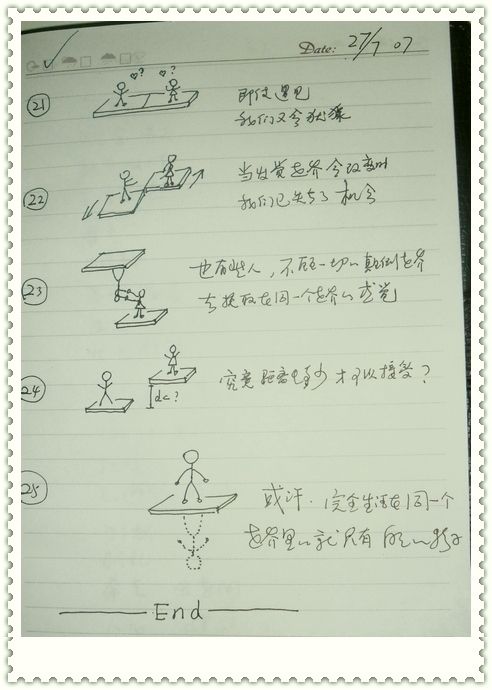 Date: 27/7 07
21
♡? ♡?
即使遇见
我们又会犹豫
22
当发觉世界会改变时
我们已失去了机会
23
也有些人，不顾一切的颠倒世界
去换取在同一个世界的感觉
24
dc?
究竟距离多少才可以接受？
25
或许．完全生活在同一个
世界里的就只有自己的影子
End